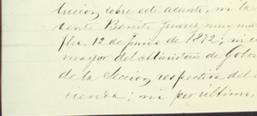 ticcion sobre este asunto, ni la
cente Benito Juarez muy
fha. 12 de Junio de 1872; ni el
mayor del Ministerio de Gober
de la Seccion respectiva del
cienda; ni por ultimo,